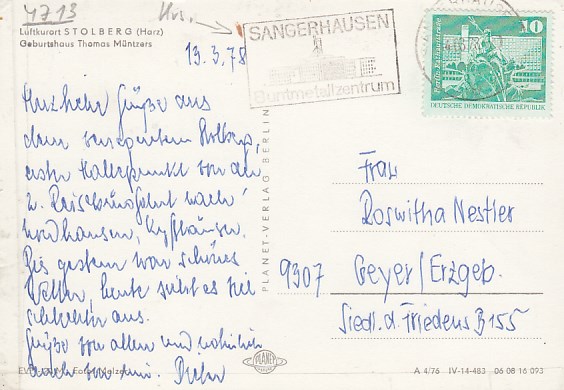 4713
Hrs.
Luftkurort STOLBERG (Harz)
Geburtshaus Thomas Müntzers
SANGERHAUSEN
Buntmetallzentrum
10
DEUTSCHE DEMOKRATISCHE REPUBLIK
19.3.78
Herzliche Grüße aus
dem Stolberg,
erster Haltepunkt von der
2. nach
Nordhausen, Kyffhäuser.
Bis gestern war schönes
Wetter, heute sieht es
schlechter aus.
Grüße von allen und natürlich
auch von
PLANET-VERLAG BERLIN
Frau
Roswitha Nestler
9307 Geyer/Erzgeb.
Siedl. d. Friedens B 155
PLANET
A 4/76 IV-14-483 06 08 16 093